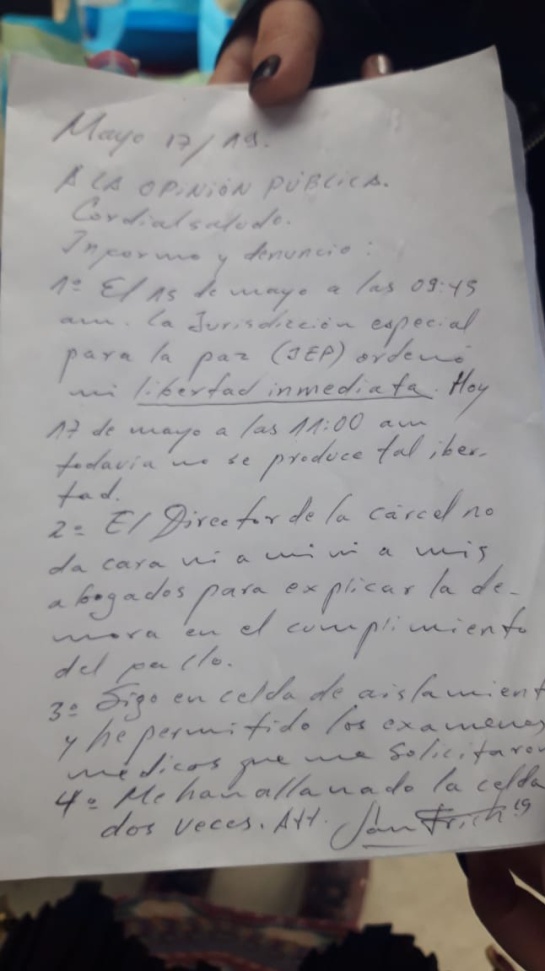 Mayo 17/19.
A LA OPINIÓN PÚBLICA.
Cordial saludo.
Informo y denuncio:
1º El 15 de mayo a las 09:45
am. la Jurisdicción especial
para la paz (JEP) ordenó
mi libertad inmediata. Hoy
17 de mayo a las 11:00 am
todavía no se produce tal liber-
tad.
2º El Director de la cárcel no
da cara ni a mi ni a mis
abogados para explicar la de-
mora en el cumplimiento
del
3º Sigo en celda de aislamient
y he permitido los examenes
médicos que me solicitaron
4º Me han allanado la celda
dos veces. Att.